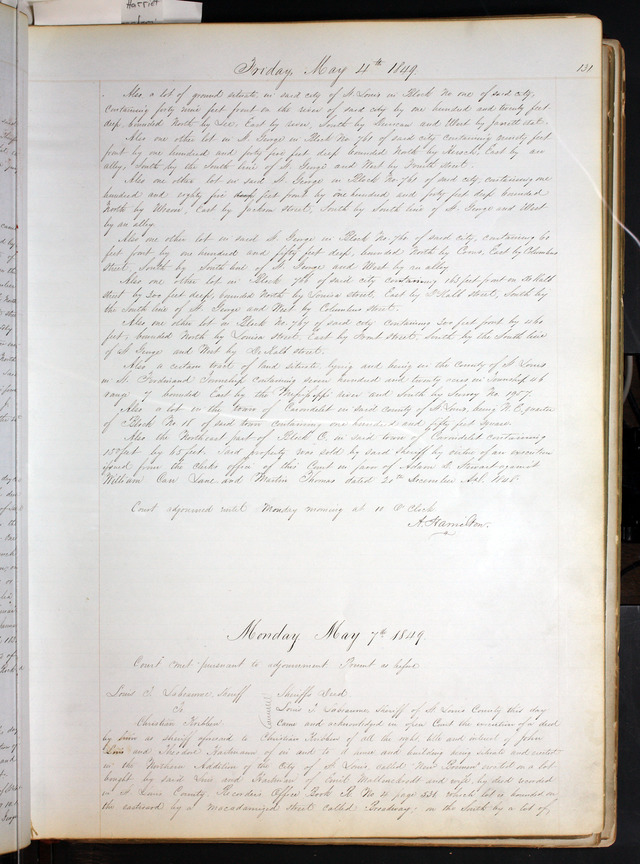 Harriet
Friday, May 4th 1849.
131
Also a lot of ground situate in said city of St Louis in Block No one of said city,
containing forty nine feet front on the river of said city by one hundred and twenty feet
deep bounded North by Lee, East by river, South by and West by street.
Also one other lot in St. George in Block No 760 of said city containing ninety feet
front by one hundred and fifty five feet deep bounded North by East by an
alley, South by the South line of St George and West by Fourth street.
Also one other lot in said St George in Block No 760 of said city, containing one
hundred and eighty five feet front by one hundred and fifty feet deep bounded
North by East by Jackson street, South by South line of St. George and West
by an alley.
Also one other lot in said St. George in Block No. 760 of said city, containing 60
feet front by one hundred and fifty feet deep, bounded North by East by Columbus
Street, South by South line of St George and West by an alley
Also one other lot in Block of said city containing 163 feet front on DeKalb
street by 300 feet deep, bounded North by Louisa street, East by DeKalb street, South by
the South line of St. George and West by Columbus street.
Also one other lot in Block No 767 of said city containing 300 feet front by
feet, bounded North by Louisa Street, East by Front street, South by the South line
of St George and West by DeKalb street.
Also a certain tract of land situate, lying and being in the County of St Louis
in St. Ferdinand Township containing seven hundred and twenty acres in Township 46
range 7 bounded East by the Mississippi river and South by Survey No 1907.
Also a lot in the town of Carondelet in said County of St Louis, being N. E. quarter
of Block No 18 of said town containing one hundred and fifty feet square.
Also the Northwest part of Block C, in said town of Carondelet containing
150 feet by 65 feet. Said property was sold by said Sheriff by virtue of an execution
issued from the clerks office of this Court in favor of Adam S. Stewart against
William Carr Lane and Martin Thomas dated 20th December A.D. 1848.
Court adjourned until Monday morning at 10 O'Clock
A. Hamilton.
Monday May 7th 1849.
Court met pursuant to adjournment Present as before
Louis T. Labeaume, Sheriff
Sheriffs Deed
To
Louis T. Labeaume, Sheriff of St Louis County this day
Christian
came and acknowledged in open Court the execution of a deed
by him as sheriff aforesaid to Christian of all the right, title and interest of John
and Theodore Hartmann of in and to a and building being situate and erected
in the Northern Addition of the City of St Louis, called "New Bremen" erected on a lot
bought by said and Hartmann of Emil Mallinckrodt and wife, by deed recorded
in St Louis County Recorders Office Book R No 4 page 331 which lot is bounded on
the eastward by a macadamized street called Broadway; on the South by a lot of,